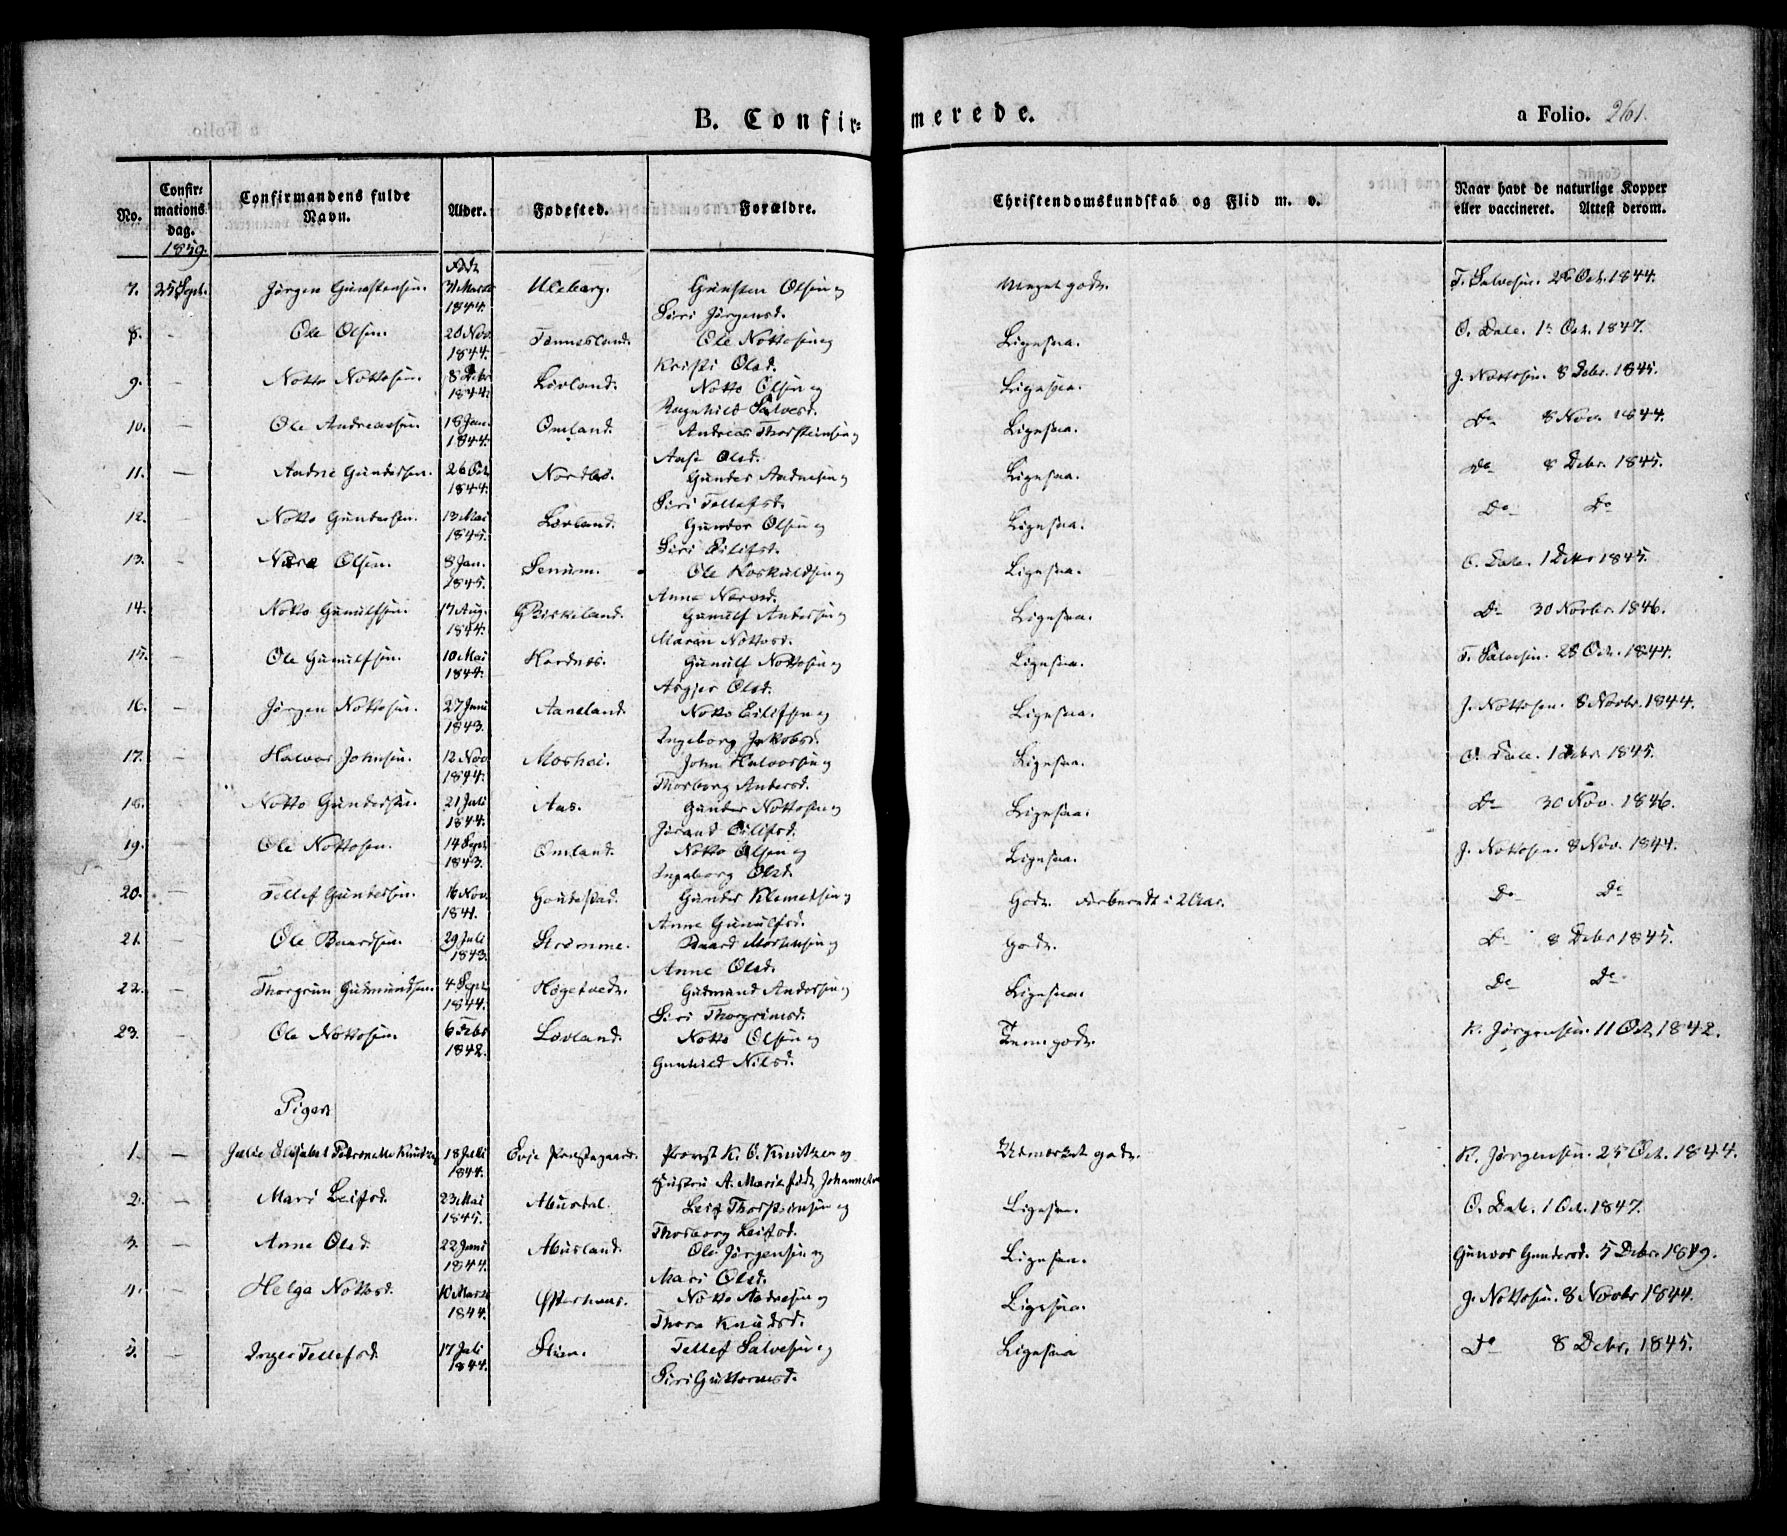 B. Confir- merede.
a Folio. 261.
No. Confirmations dag. Confirmandens fulde Navn. Alder. Fødested. Forældre. Christendomskundskab og Flid m. v. Naar havt de naturlige Kopper eller vaccineret. Attest derom.
1859.
7. 25 Sept. Jørgen Gunstensen. Født 31 Marts 1844. Uleberg. Gunsten Olsen og Siri Jørgensd. Meget godt. T. Salvesen. 26 Oct. 1844.
8. - Ole Olsen. 20 Nov. 1844. Tønnesland. Ole Nottosen og Kristi Olsd. Ligesaa. O. Dale. 1 Oct. 1847.
9. - Notto Nottosen. 8 Debr 1844. Lövland. Notto Olsen og Ragnhild Salvesd. Ligesaa. J. Nottosen 8 Debr. 1845.
10. - Ole Andreassen. 18 Jan. 1844. Omland. Andreas Thorsteinsen og Aase Olsd. Ligesaa. Do 8 Nov. 1844.
11. - Aadne Gundersen. 26 Oct. 1844. Nordbø. Gunder Aadnesen og Siri Tellefsd. Ligesaa. Do 8 Debr. 1845.
12. - Notto Gundersen. 13 Mai 1845. Lovland. Gunder Olsen og Siri Eilifsd. Ligesaa. Do Do
13. - Olsen. 8 Jan. 1845. Senum. Ole Hoskuldsen og Anne Ligesaa. O. Dale. 1 Debr 1845.
14. - Notto Gunulfsen. 17 Aug. 1844. Birkeland. Gunulf Andersen og Maren Nottosd. Ligesaa. Do 30 Novbr. 1846.
15. - Ole Gunulfsen. 10 Mai 1844. Hordnes. Gunulf Nottosen og Asgjer Olsd. Ligesaa. T. Salvesen. 28 Oct. 1844.
16. - Jørgen Nottosen. 27 Juni 1843. Aaneland. Notto Eilifsen og Ingeborg Jakobsd. Ligesaa. J. Nottosen. 8 Novbr. 1844.
17. - Halvor Johnsen. 12 Nov 1844. Moshei. John Halvorsen og Thorborg Andersd. Ligesaa. O. Dale. 1 Debr. 1845.
18. - Notto Gundersen. 21 Juli 1844. Aas. Gunder Nottosen og Jorand Eilifsd. Ligesaa. Do 30 Nov. 1846.
19. - Ole Nottosen. 14 Sept 1843. Omland. Notto Olsen og Ingeborg Olsd. Ligesaa. J. Nottosen. 8 Nov. 1844.
20. - Tellef Gundersen. 16 Nov. 1841. Gautestad. Gunder Klemetsen og Anne Gunulfsd. Godt. Forberedt i 2 Aar. Do Do
21. - Ole Baardsen. 29 Juli 1843. Strømme. Baard Mortensen og Anne Olsd. Godt. Do 8 Debr 1845.
22. - Thorgrim Gudmundsen. 4 Sept 1844. Høgetvedt. Gudmund Andersen og Siri Thorgrimsd. Ligesaa. Do Do
23. Ole Nottosen. 6 Febr 1842. Lovland. Notto Olsen og Gunhild Nilsd. Temgodt. K. Jørgensen. 11 Oct. 1842.
Piger
1. - Julie Elisabet Petronelle Knutzen 18 Juli 1844. Evje Præstegaard. Provst K. O. Knutzen og Hustru A. Marie født Johannesen Udmerket godt. K. Jørgensen. 25 Oct. 1844.
2. - Mari Leifsd. 23 Mai 1845. Abusdal. Leif Thorsteinsen og Thorborg Leifsd. Ligesaa. O. Dale. 1 Oct. 1847.
3. - Anne Olsd. 22 Juni 1844. Abusland. Ole Jørgensen og Mari Olsd. Ligesaa. Gunvor Gundersd. 5 Debr. 1849.
4. - Helga Nottosd. 10 Marts 1844. Østerhuus. Notto Aadnesen og Thora Knudsd. Ligesaa. J. Nottosen. 8 Novbr 1844.
5. - Inger Tellefsd. 17 Juli 1844. Stien. Tellef Salvesen og Siri Guttormsd. Ligesaa Do 8 Debr. 1845.